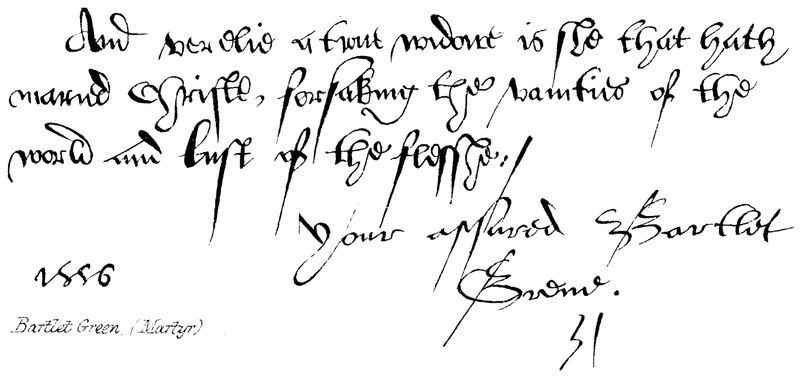 And verelie a true widowe is she that hath
maried Christe, forsaking the vanities of the
world and lust of the flesshe:/
Your assured Bartlet
Grene.
1556
Bartlet Green, (Martyr)